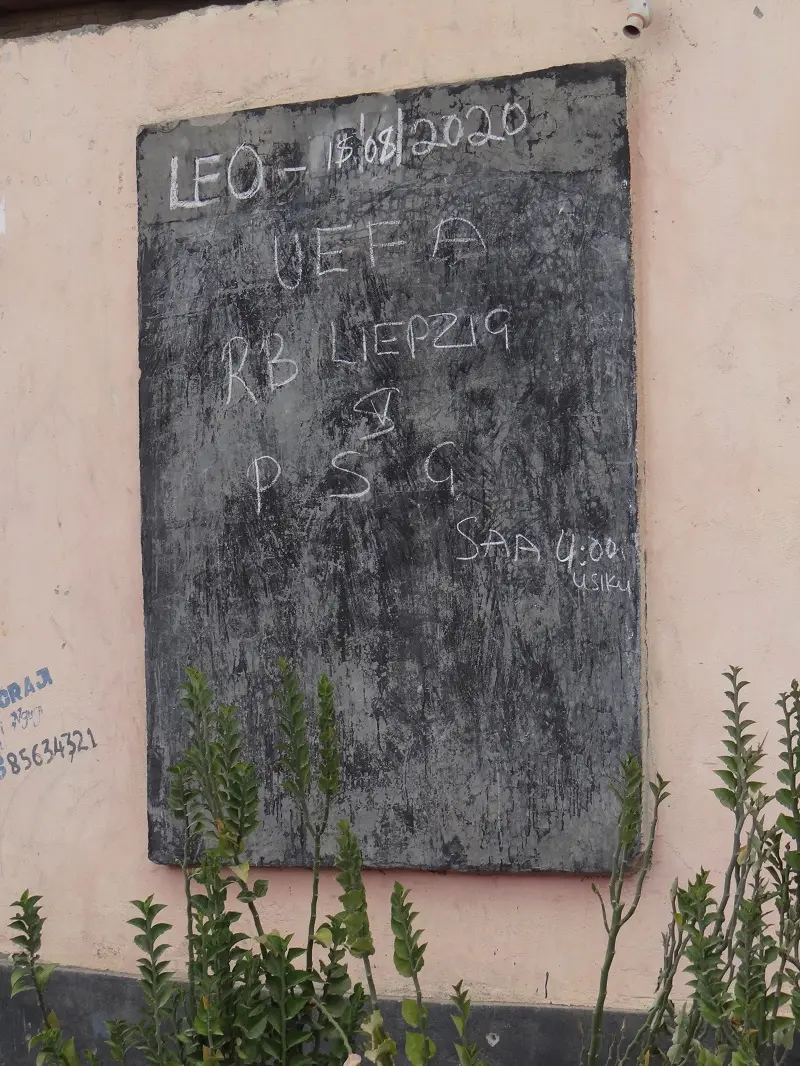 LEO - 18/08/2020
UEFA
RB LIEPZIG
V
P S G
SAA 4:00
USIKU
ORAJI
85634321